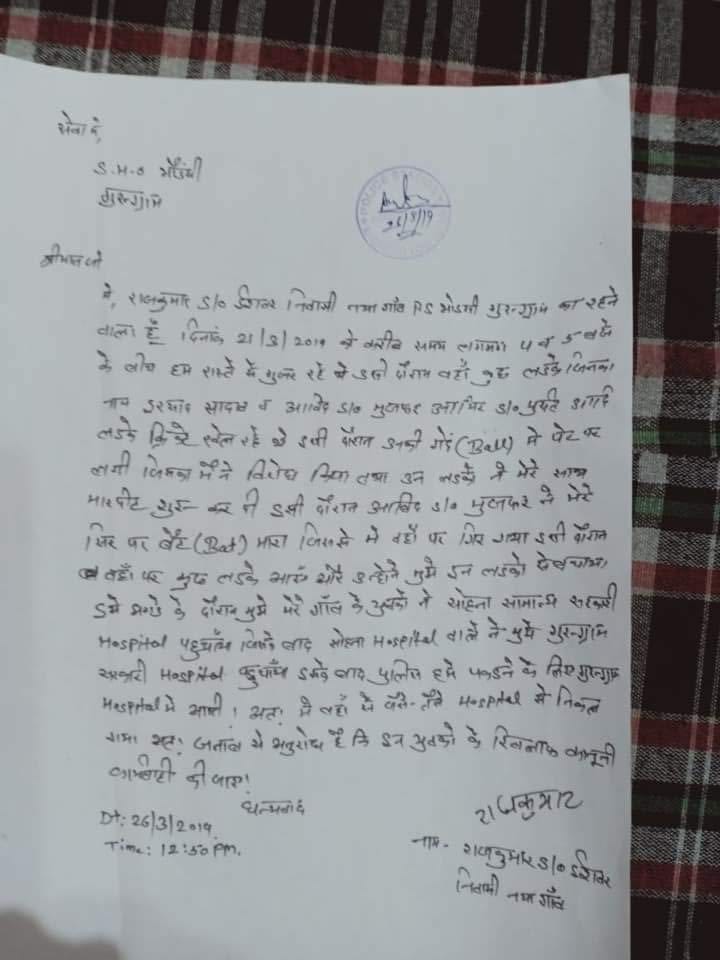 सेवा में,
S.H.O भौंडसी
गुरुग्राम
26/3/19
श्रीमान जी
मैं, राजकुमार S/o ईश्वर निवासी नया गाँव P.S भोडसी गुरुग्राम का रहने
वाला हूँ दिनांक 21/3/2019 को करीब समय लगभग 4 व 5 बजे
के बीच हम रास्ते से गुजर रहे थे इसी दौरान वहाँ कुछ लडके जिनका
नाम इरशाद व आबिद S/o आमिर S/o आदि
लडके क्रिकेट खेल रहे थे इसी दौरान उनकी गेंद (Ball) मेरे पेट पर
लगी जिसका मैंने विरोध किया तथा उन लडकों ने मेरे साथ
मारपीट शुरू कर दी इसी दौरान आबिद S/o ने मेरे
सिर पर बैट (Bat) मारा जिससे मैं वहाँ पर गिर गया इसी दौरान
वहाँ पर कुछ लडके आए और उन्होंने मुझे इन लडकों
झगडे के दौरान मुझे मेरे गाँव के युवकों ने सोहना सामान्य सरकारी
Hospital पहुचाँया जिसके बाद सोहना Hospital वालों ने मुझे गुरुग्राम
सरकारी Hospital पहुचाँया इसके बाद पुलिस हमे पकडने के लिए गुरुग्राम
Hospital में आयी। अतः मैं वहाँ से जैसे-तैसे Hospital से निकल
गया अतः जनाब से अनुरोध है कि इन युवकों के खिलाफ कानूनी
कार्यवाही की जाए!
धन्यवाद
Dt: 26/3/2019
Time: 12:50 PM.
राजकुमार
नाम - राजकुमार S/o ईश्वर
निवासी नया गाँव